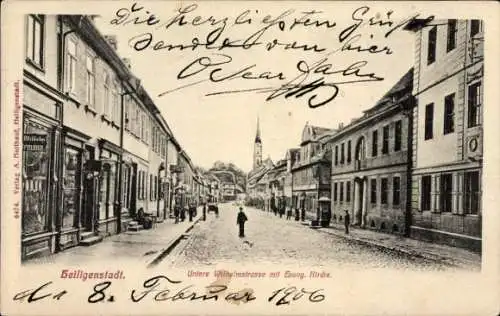 Die herzlichsten Grüße
Sendet von hier
Oscar Jahn
Heiligenstadt.
Untere Wilhelmstrasse mit Evang. Kirche.
den 8. Februar 1906